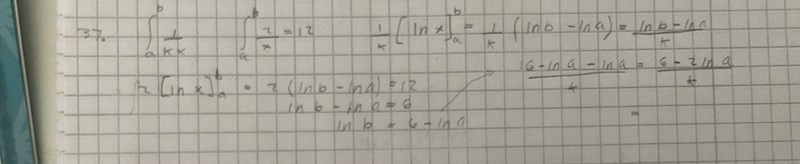 37. ∫_a^b 1/kx ∫_a^b 2/x = 12 1/k [ln x]_a^b = 1/k (ln b - ln a) = (ln b - ln a)/k
2 [ln x]_a^b = 2 (ln b - ln a) = 12 (6 - ln a - ln a)/k = (6 - 2 ln a)/k
ln b - ln a = 6
ln b = 6 - ln a =